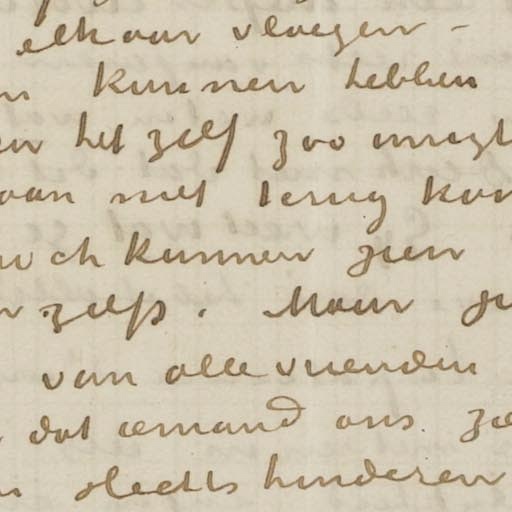 elkaar vloegen -
n kunnen hebben
en het zelf zoo
aan niet terug kon
noch kunnen zien
zelfs. Maar
van alle vrienden
dat iemand ons
slechts hinderen